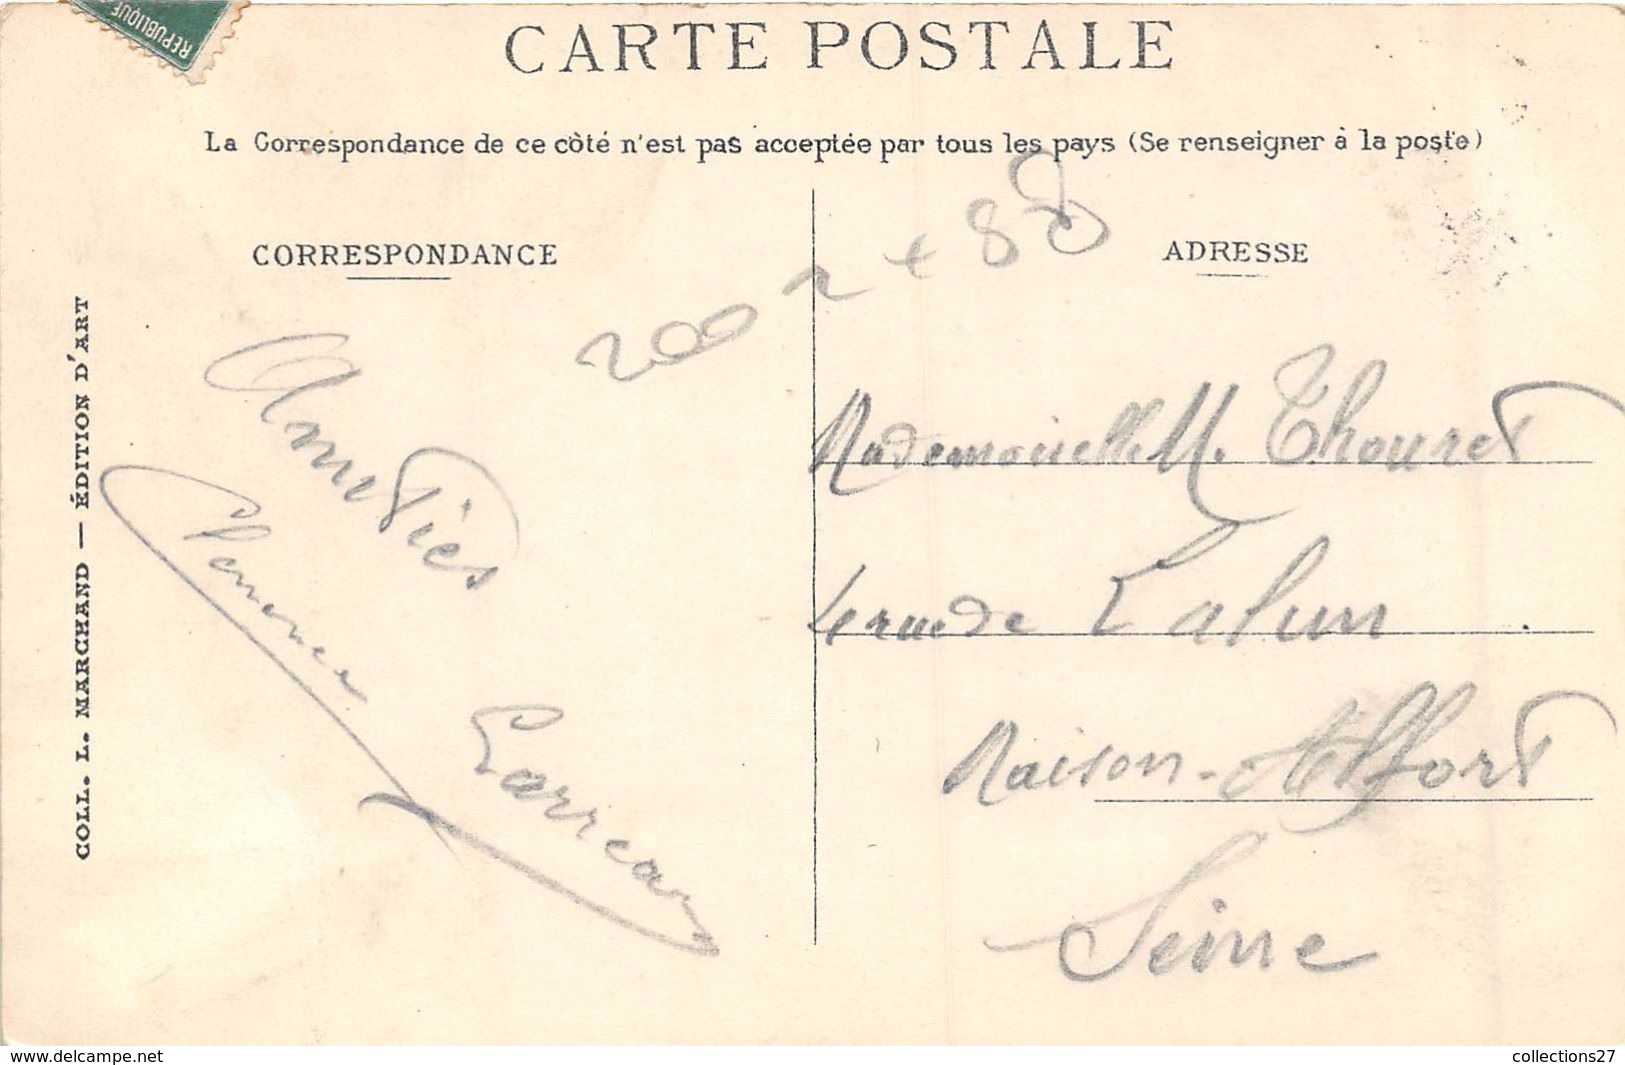 REPUBLIQUE
CARTE POSTALE
La Correspondance de ce côté n'est pas acceptée par tous les pays (Se renseigner à la poste)
CORRESPONDANCE
ADRESSE
COLL. L. MARCHAND — ÉDITION D'ART
200
Amitiés
Clemence
Carreau
Mademoiselle M. Thouret
4 rue de
Maison-Alfort
Seine
www.delcampe.net
collections27